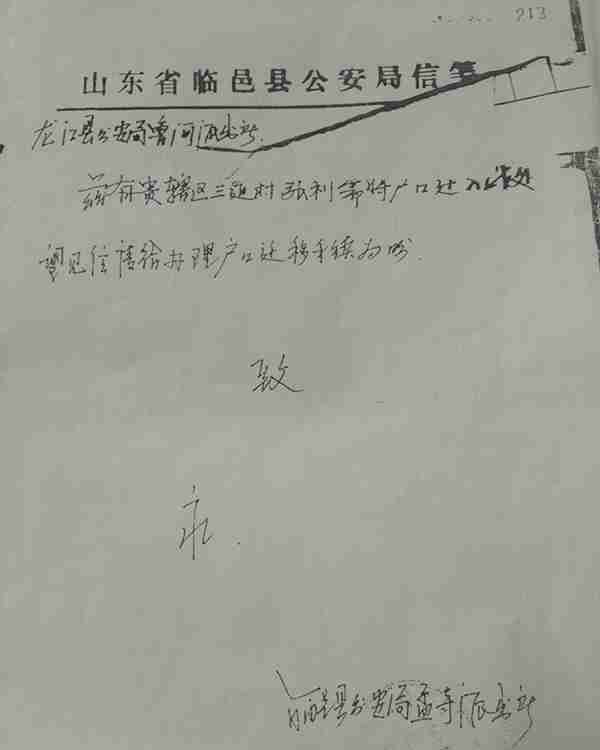 213
山东省临邑县公安局信笺
龙江县公安局鲁河派出所
兹有贵辖区三姓村张利等将户口迁入我处
望见信请给办理户口迁移手续为盼.
致
礼.
临邑县公安局孟寺派出所